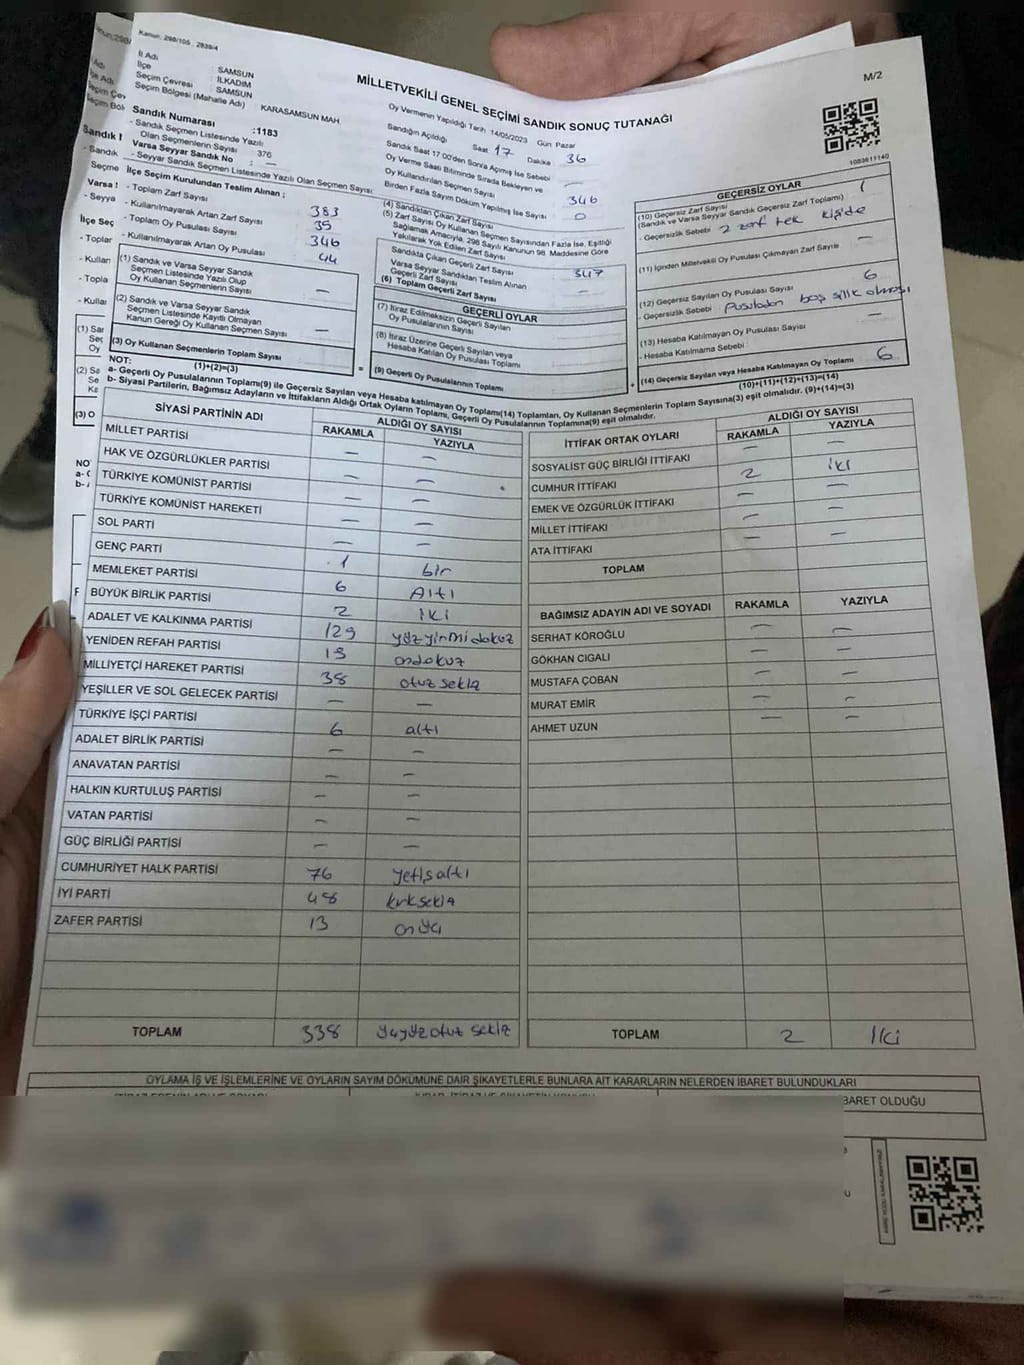 Kanun: 298/105 , 2839/4
MİLLETVEKİLİ GENEL SEÇİMİ SANDIK SONUÇ TUTANAĞI
M/2
İl Adı : SAMSUN
İlçe : İLKADIM
Seçim Çevresi : SAMSUN
Seçim Bölgesi (Mahalle Adı) KARASAMSUN MAH
Sandık Numarası :1183
- Sandık Seçmen Listesinde Yazılı
Olan Seçmenlerin Sayısı 376
Varsa Seyyar Sandık No : —
- Seyyar Sandık Seçmen Listesinde Yazılı Olan Seçmen Sayısı
İlçe Seçim Kurulundan Teslim Alınan ;
- Toplam Zarf Sayısı 383
- Kullanılmayarak Artan Zarf Sayısı 35
- Toplam Oy Pusulası Sayısı 346
- Kullanılmayarak Artan Oy Pusulası 44
(1) Sandık ve Varsa Seyyar Sandık
Seçmen Listesinde Yazılı Olup
Oy Kullanan Seçmenlerin Sayısı —
(2) Sandık ve Varsa Seyyar Sandık
Seçmen Listesinde Kayıtlı Olmayan
Kanun Gereği Oy Kullanan Seçmen Sayısı —
(3) Oy Kullanan Seçmenlerin Toplam Sayısı
(1)+(2)=(3)
Oy Vermenin Yapıldığı Tarih 14/05/2023 Gün Pazar
Sandığın Açıldığı Saat 17 Dakika 36
Sandık Saat 17.00'den Sonra Açılmış İse Sebebi —
Oy Verme Saati Bitiminde Sırada Bekleyen ve
Oy Kullandırılan Seçmen Sayısı
Birden Fazla Sayım Döküm Yapılmış İse Sayısı
(4) Sandıktan Çıkan Zarf Sayısı 346
(5) Zarf Sayısı Oy Kullanan Seçmen Sayısından Fazla İse, Eşitliği
Sağlamak Amacıyla, 298 Sayılı Kanunun 98. Maddesine Göre
Yakılarak Yok Edilen Zarf Sayısı 0
Sandıkta Çıkan Geçerli Zarf Sayısı 347
Varsa Seyyar Sandıktan Teslim Alınan
Geçerli Zarf Sayısı —
(6) Toplam Geçerli Zarf Sayısı
GEÇERLİ OYLAR
(7) İtiraz Edilmeksizin Geçerli Sayılan
Oy Pusulalarının Sayısı
(8) İtiraz Üzerine Geçerli Sayılan veya
Hesaba Katılan Oy Pusulası Toplamı
(9) Geçerli Oy Pusulalarının Toplamı
1083611140
GEÇERSİZ OYLAR
(10) Geçersiz Zarf Sayısı 1
(Sandık ve Varsa Seyyar Sandık Geçersiz Zarf Toplamı)
- Geçersizlik Sebebi 2 zarf tek kişide
(11) İçinden Milletvekili Oy Pusulası Çıkmayan Zarf Sayısı —
(12) Geçersiz Sayılan Oy Pusulası Sayısı 6
- Geçersizlik Sebebi : pusuladan boş silik olması
(13) Hesaba Katılmayan Oy Pusulası Sayısı —
- Hesaba Katılmama Sebebi :
(14) Geçersiz Sayılan veya Hesaba Katılmayan Oy Toplamı 6
(10)+(11)+(12)+(13)=(14)
NOT:
a- Geçerli Oy Pusulalarının Toplamı(9) ile Geçersiz Sayılan veya Hesaba katılmayan Oy Toplamı(14) Toplamları, Oy Kullanan Seçmenlerin Toplam Sayısına(3) eşit olmalıdır. (9)+(14)=(3)
b- Siyasi Partilerin, Bağımsız Adayların ve İttifakların Aldığı Ortak Oyların Toplamı, Geçerli Oy Pusulalarının Toplamına(9) eşit olmalıdır.
SİYASİ PARTİNİN ADI ALDIĞI OY SAYISI
RAKAMLA YAZIYLA
MİLLET PARTİSİ — —
HAK VE ÖZGÜRLÜKLER PARTİSİ — —
TÜRKİYE KOMÜNİST PARTİSİ — —
TÜRKİYE KOMÜNİST HAREKETİ — —
SOL PARTİ — —
GENÇ PARTİ 1 bir
MEMLEKET PARTİSİ 6 Altı
BÜYÜK BİRLİK PARTİSİ 2 iki
ADALET VE KALKINMA PARTİSİ 129 yüzyirmidokuz
YENİDEN REFAH PARTİSİ 19 ondokuz
MİLLİYETÇİ HAREKET PARTİSİ 38 otuz sekiz
YEŞİLLER VE SOL GELECEK PARTİSİ — —
TÜRKİYE İŞÇİ PARTİSİ 6 altı
ADALET BİRLİK PARTİSİ — —
ANAVATAN PARTİSİ — —
HALKIN KURTULUŞ PARTİSİ — —
VATAN PARTİSİ — —
GÜÇ BİRLİĞİ PARTİSİ — —
CUMHURİYET HALK PARTİSİ 76 yetişaltı
İYİ PARTİ 48 kırksekiz
ZAFER PARTİSİ 13 onüç
TOPLAM 338 üçyüz otuz sekiz
İTTİFAK ORTAK OYLARI ALDIĞI OY SAYISI
RAKAMLA YAZIYLA
SOSYALİST GÜÇ BİRLİĞİ İTTİFAKI — —
CUMHUR İTTİFAKI 2 iki
EMEK VE ÖZGÜRLÜK İTTİFAKI — —
MİLLET İTTİFAKI — —
ATA İTTİFAKI — —
TOPLAM
BAĞIMSIZ ADAYIN ADI VE SOYADI RAKAMLA YAZIYLA
SERHAT KÖROĞLU — —
GÖKHAN CIGALI — —
MUSTAFA ÇOBAN — —
MURAT EMİR — —
AHMET UZUN — —
TOPLAM 2 İki
OYLAMA İŞ VE İŞLEMLERİNE VE OYLARIN SAYIM DÖKÜMÜNE DAİR ŞİKAYETLERLE BUNLARA AİT KARARLARIN NELERDEN İBARET BULUNDUKLARI
BARET OLDUĞU